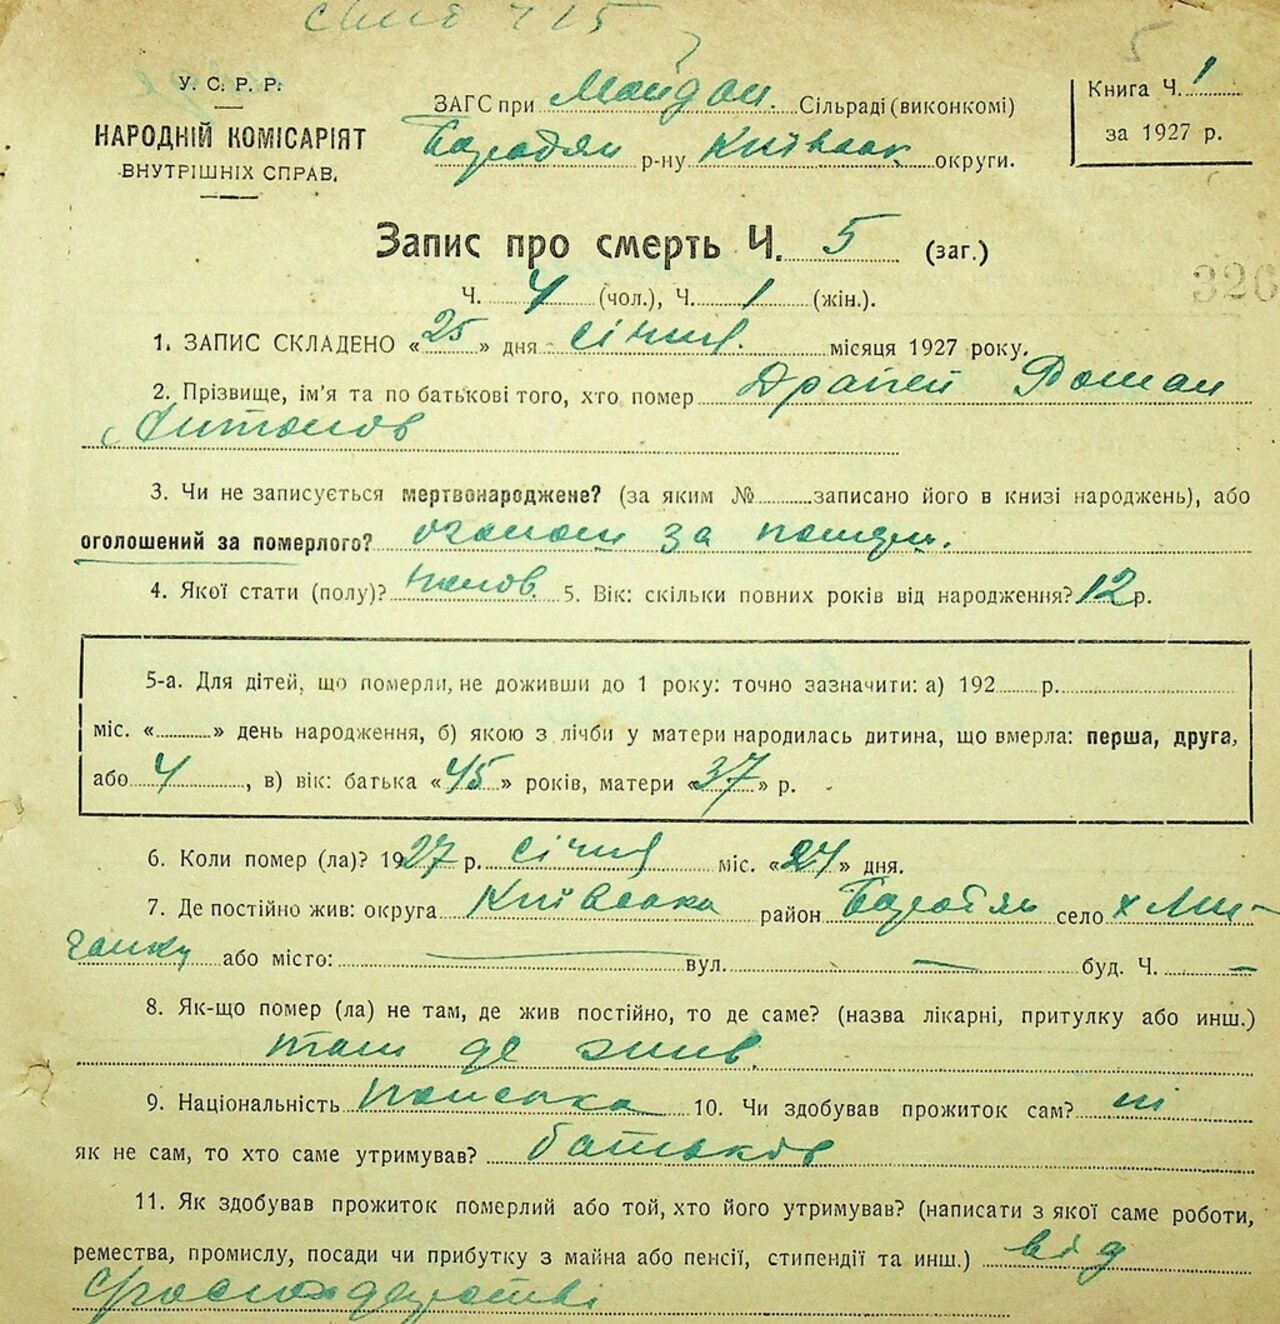 У. С. Р. Р.
НАРОДНІЙ КОМІСАРІЯТ
ВНУТРІШНІХ СПРАВ.
ЗАГС при Майдан. Сільраді (виконкомі)
Бородян р-ну Київськ округи.
Книга Ч. 1
за 1927 р.
Запис про смерть Ч. 5 (заг.)
326
Ч. 4 (чол.), Ч. 1 (жін.).
1. ЗАПИС СКЛАДЕНО «25» дня січня. місяця 1927 року.
2. Прізвище, ім'я та по батькові того, хто помер Роман
Антонов
3. Чи не записується мертвонароджене? (за яким № записано його в книзі народжень), або
оголошений за померлого? за
4. Якої стати (полу)? чолов. 5. Вік: скільки повних років від народження? 12 р.
5-а. Для дітей, що померли, не доживши до 1 року: точно зазначити: а) 192 р.
міс. « » день народження, б) якою з лічби у матери народилась дитина, що вмерла: перша, друга,
або 4, в) вік: батька «45» років, матери «37» р.
6. Коли помер (ла)? 1927 р. січня міс. «24» дня.
7. Де постійно жив: округа Київська район Бородян село х
або місто: — вул. — буд. Ч. —
8. Як-що помер (ла) не там, де жив постійно, то де саме? (назва лікарні, притулку або инш.)
там де жив.
9. Національність польська 10. Чи здобував прожиток сам? ні
як не сам, то хто саме утримував? батьків
11. Як здобував прожиток померлий або той, хто його утримував? (написати з якої саме роботи,
ремества, промислу, посади чи прибутку з майна або пенсії, стипендії та инш.) від